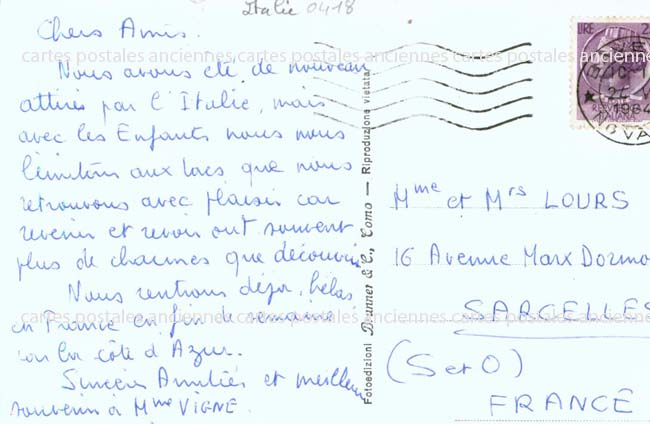 Italie 0418
Chers Amis.
Nous avons été de nouveau
attirés par l'Italie, mais
avec les Enfants nous nous
limitons aux lacs que nous
retrouvons avec plaisir car
revenir et revoir ont souvent
plus de charmes que découvrir
Nous rentrons déjà, hélas
en France en fin de semaine
sur la côte d'Azur.
Sincères Amitiés et meilleur
souvenir à Mme VIGNE.
Fotoedizioni Brunner & C., Como — Riproduzione vietata
LIRE 2
ITALIANA
1964
NOVA
Mme et Mrs LOURS
16 Avenue Marx Dormo
SARCELLES
(S et O)
FRANCE
cartes postales anciennes cartes postales anciennes cartes postales anciennes
cartes postales anciennes cartes postales anciennes cartes postales anciennes